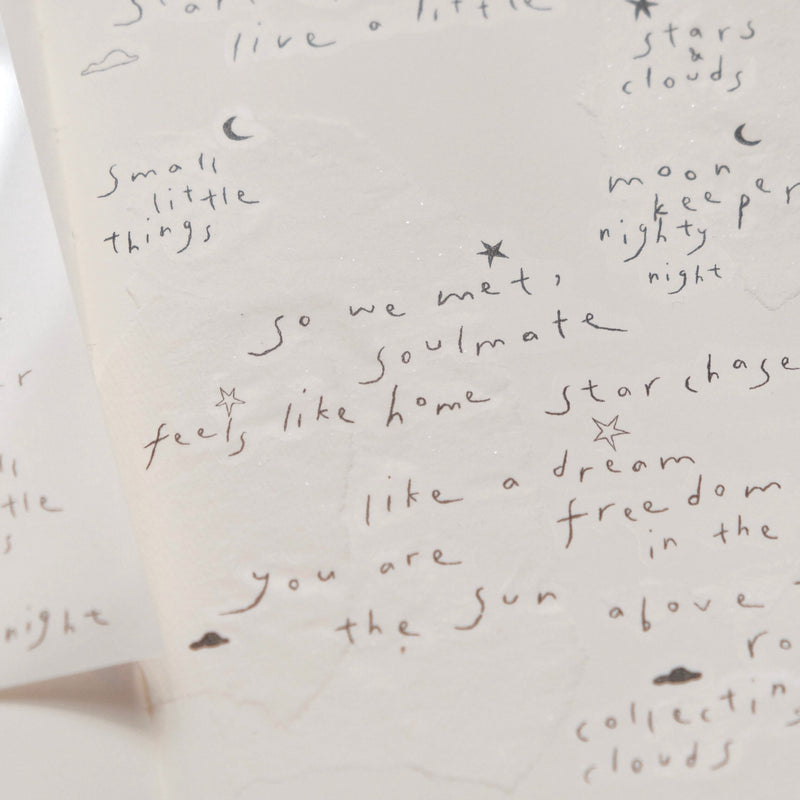 live a little
stars
&
clouds
small
little
things
moon
keeper
nighty
night
so we met,
soulmate
feels like home
star chase
like a dream
freedom
in the
you are
the sun
above
collecting
clouds
night